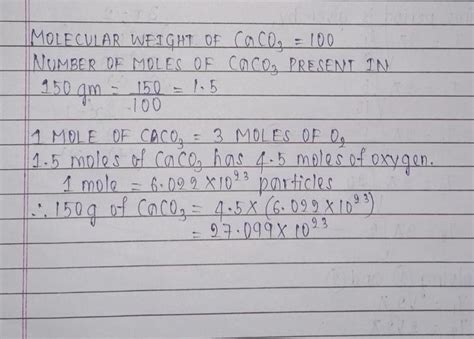 MOLECULAR WEIGHT OF CaCO₃ = 100
NUMBER OF MOLES OF CaCO₃ PRESENT IN
150 gm = 150/100 = 1.5
1 MOLE OF CACO₃ = 3 MOLES OF O₂
1.5 moles of CaCO₃ has 4.5 moles of oxygen.
1 mole = 6.022 × 10²³ particles
∴ 150g of CaCO₃ = 4.5 × (6.022 × 10²³)
= 27.099 × 10²³